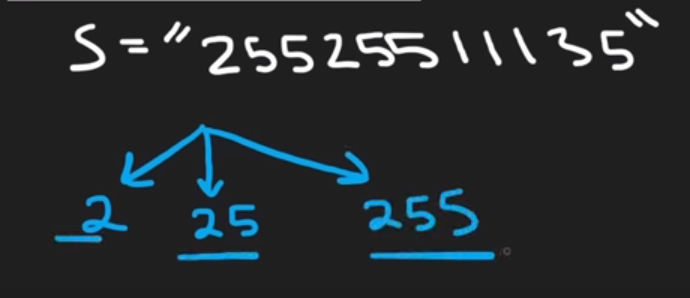 S="25525511135"
2 25 255